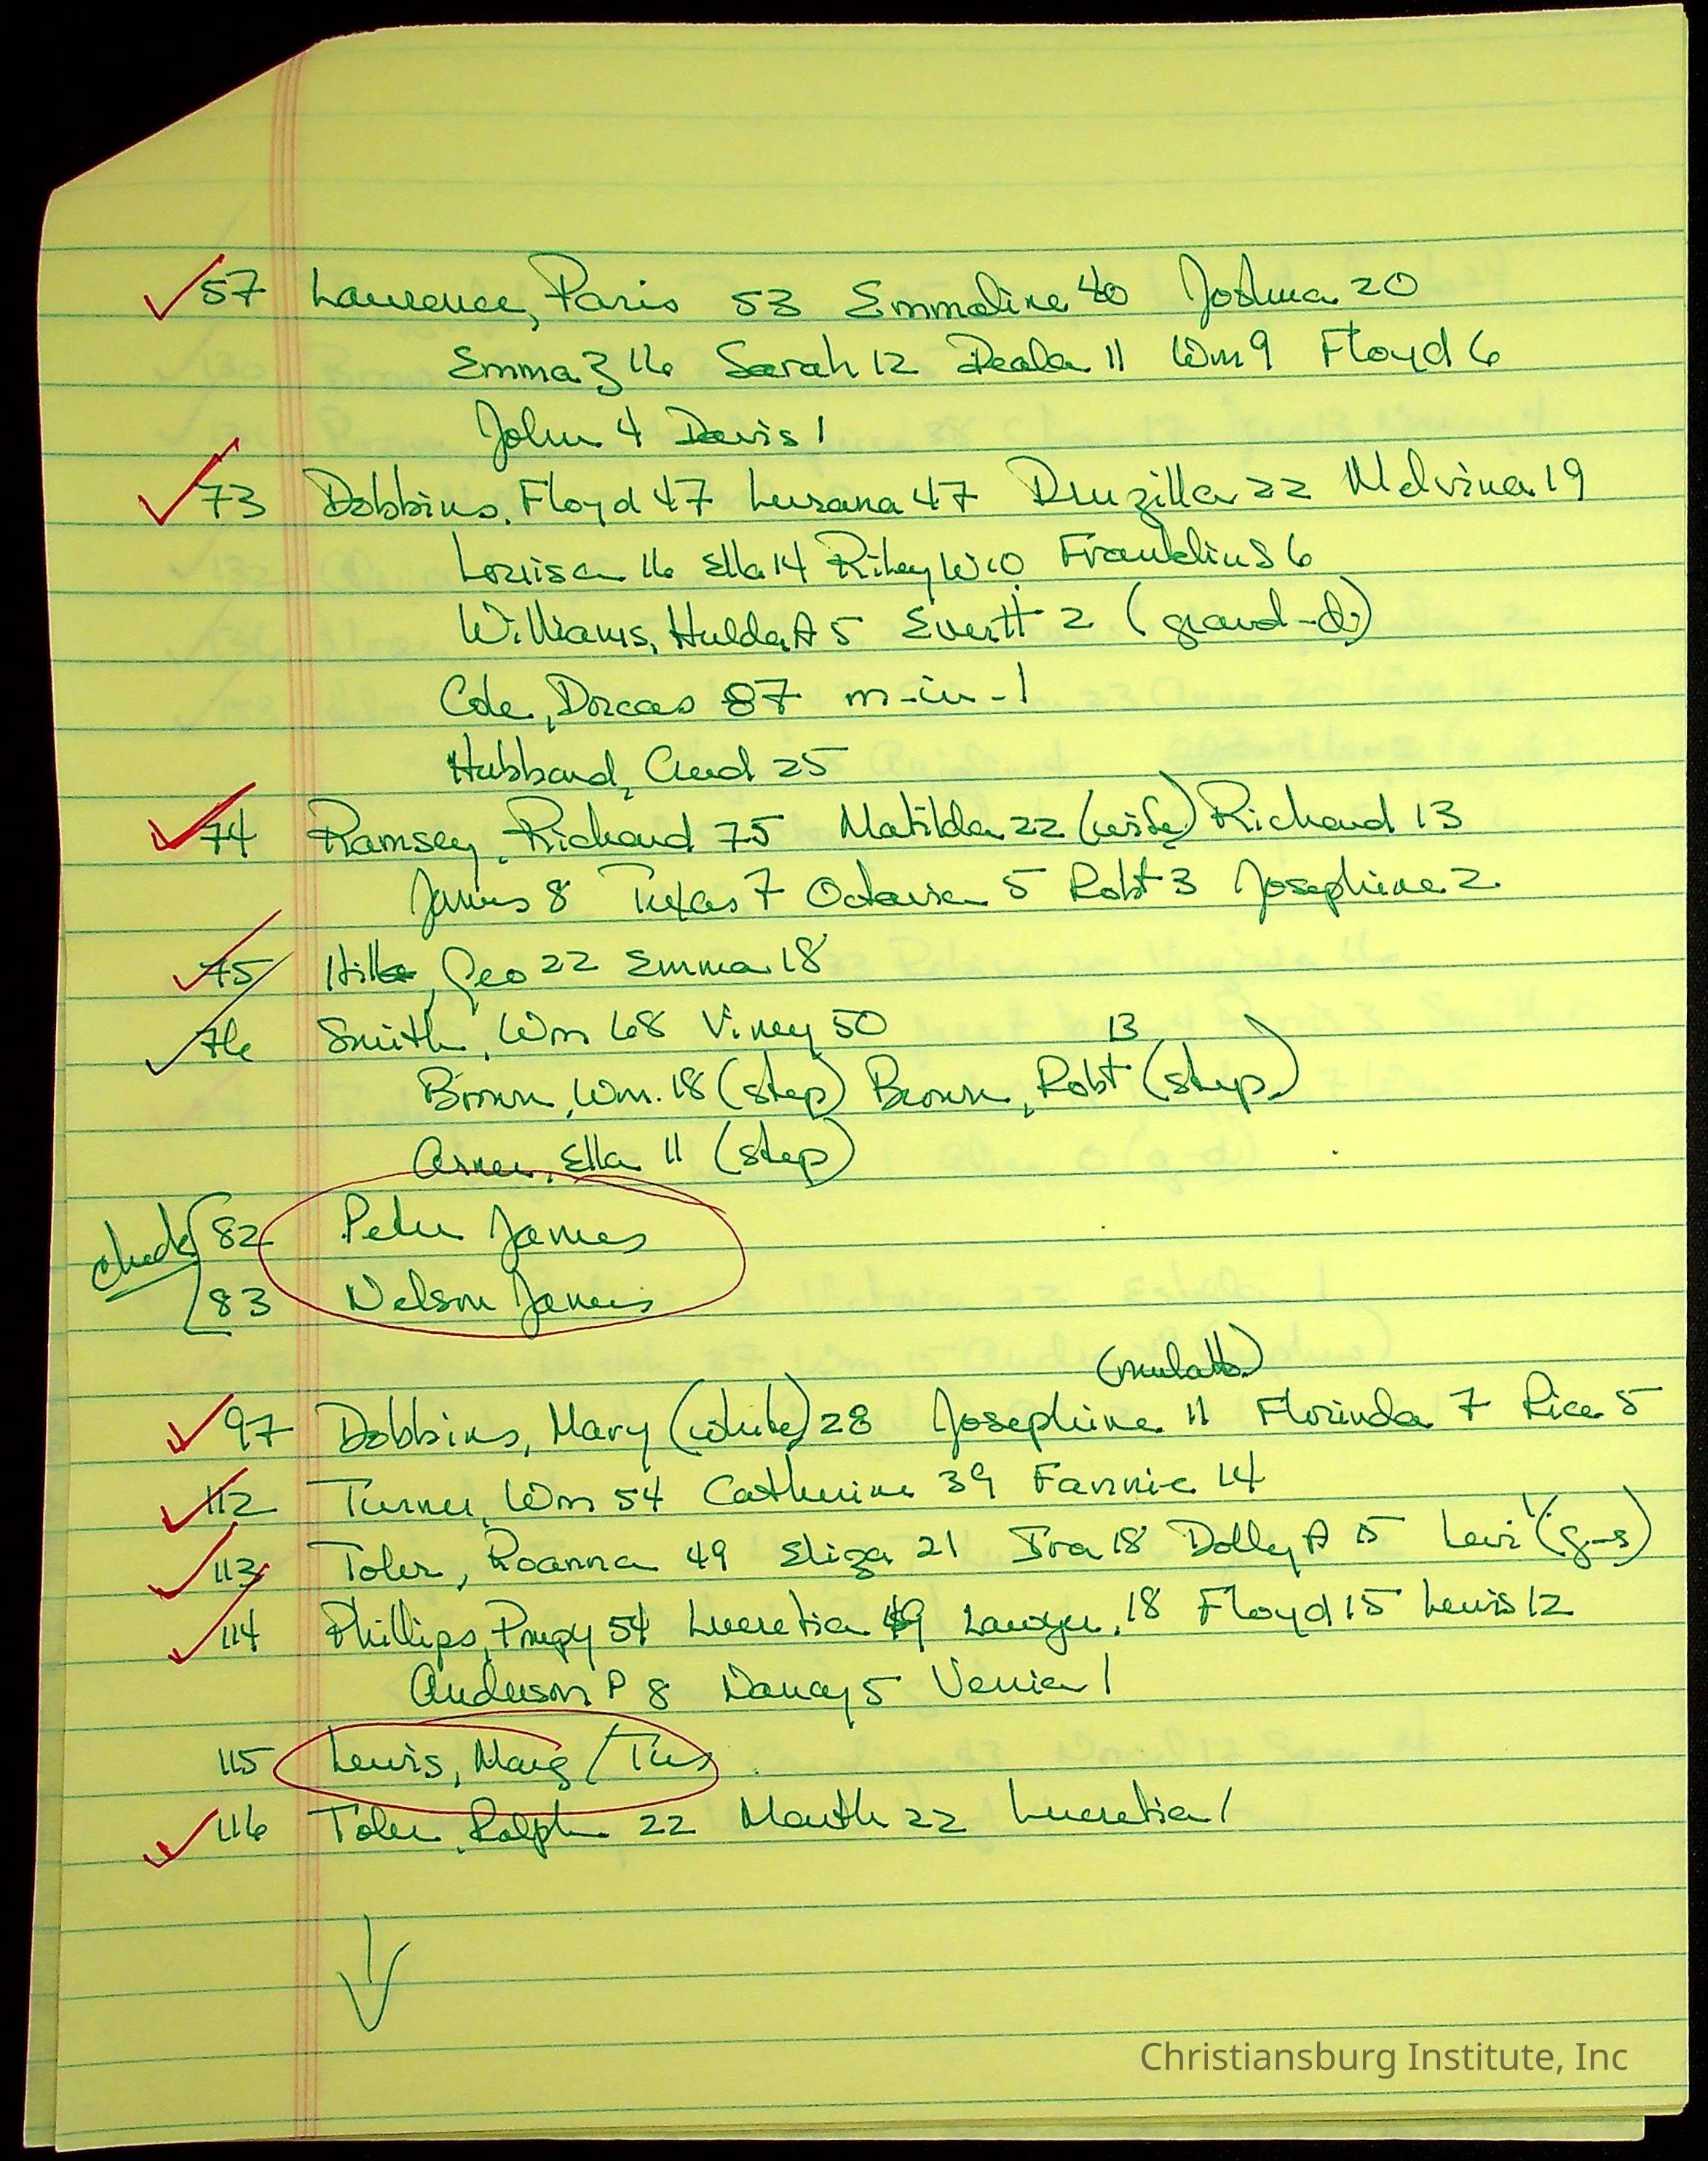 57 Lawrence, Paris 53 Emmaline 40 Joshua 20
Emma Z 16 Sarah 12 Deala 11 Wm 9 Floyd 6
John 4 Davis 1
73 Dobbins, Floyd 47 Lusana 47 Druzilla 22 Melvina 19
Louisa 16 Ella 14 Riley W 10 Franklin S 6
Williams, Hulda A 5 Evertt 2 (grand-d;)
Cole, Dorcas 87 m-in-l
Hubbard, 25
74 Ramsey, Richard 75 Matilda 22 (wife) Richard 13
James 8 Texas 7 Octavia 5 Robt 3 Josephine 2
75 Hill, Geo 22 Emma 18
76 Smith, Wm 68 Viney 50
Brown, Wm. 18 (step) Brown, Robt 13 (step)
Ella 11 (step)
check 82 Peter James
83 Nelson James
(mulatto)
97 Dobbins, Mary (white) 28 Josephine 11 Florinda 7 Rice 5
112 Turner, Wm 54 Catherine 39 Fannie 14
113 Toler, Roanna 49 Eliza 21 Ira 18 Dolly A 15 Levi 1 (g-s)
114 Phillips, 54 Lucretia 49 18 Floyd 15 Lewis 12
Anderson P 8 Nancy 5 Venia 1
115 Lewis, Marg /
116 Toler, Ralph 22 Marth 22 Lucretia 1
Christiansburg Institute, Inc